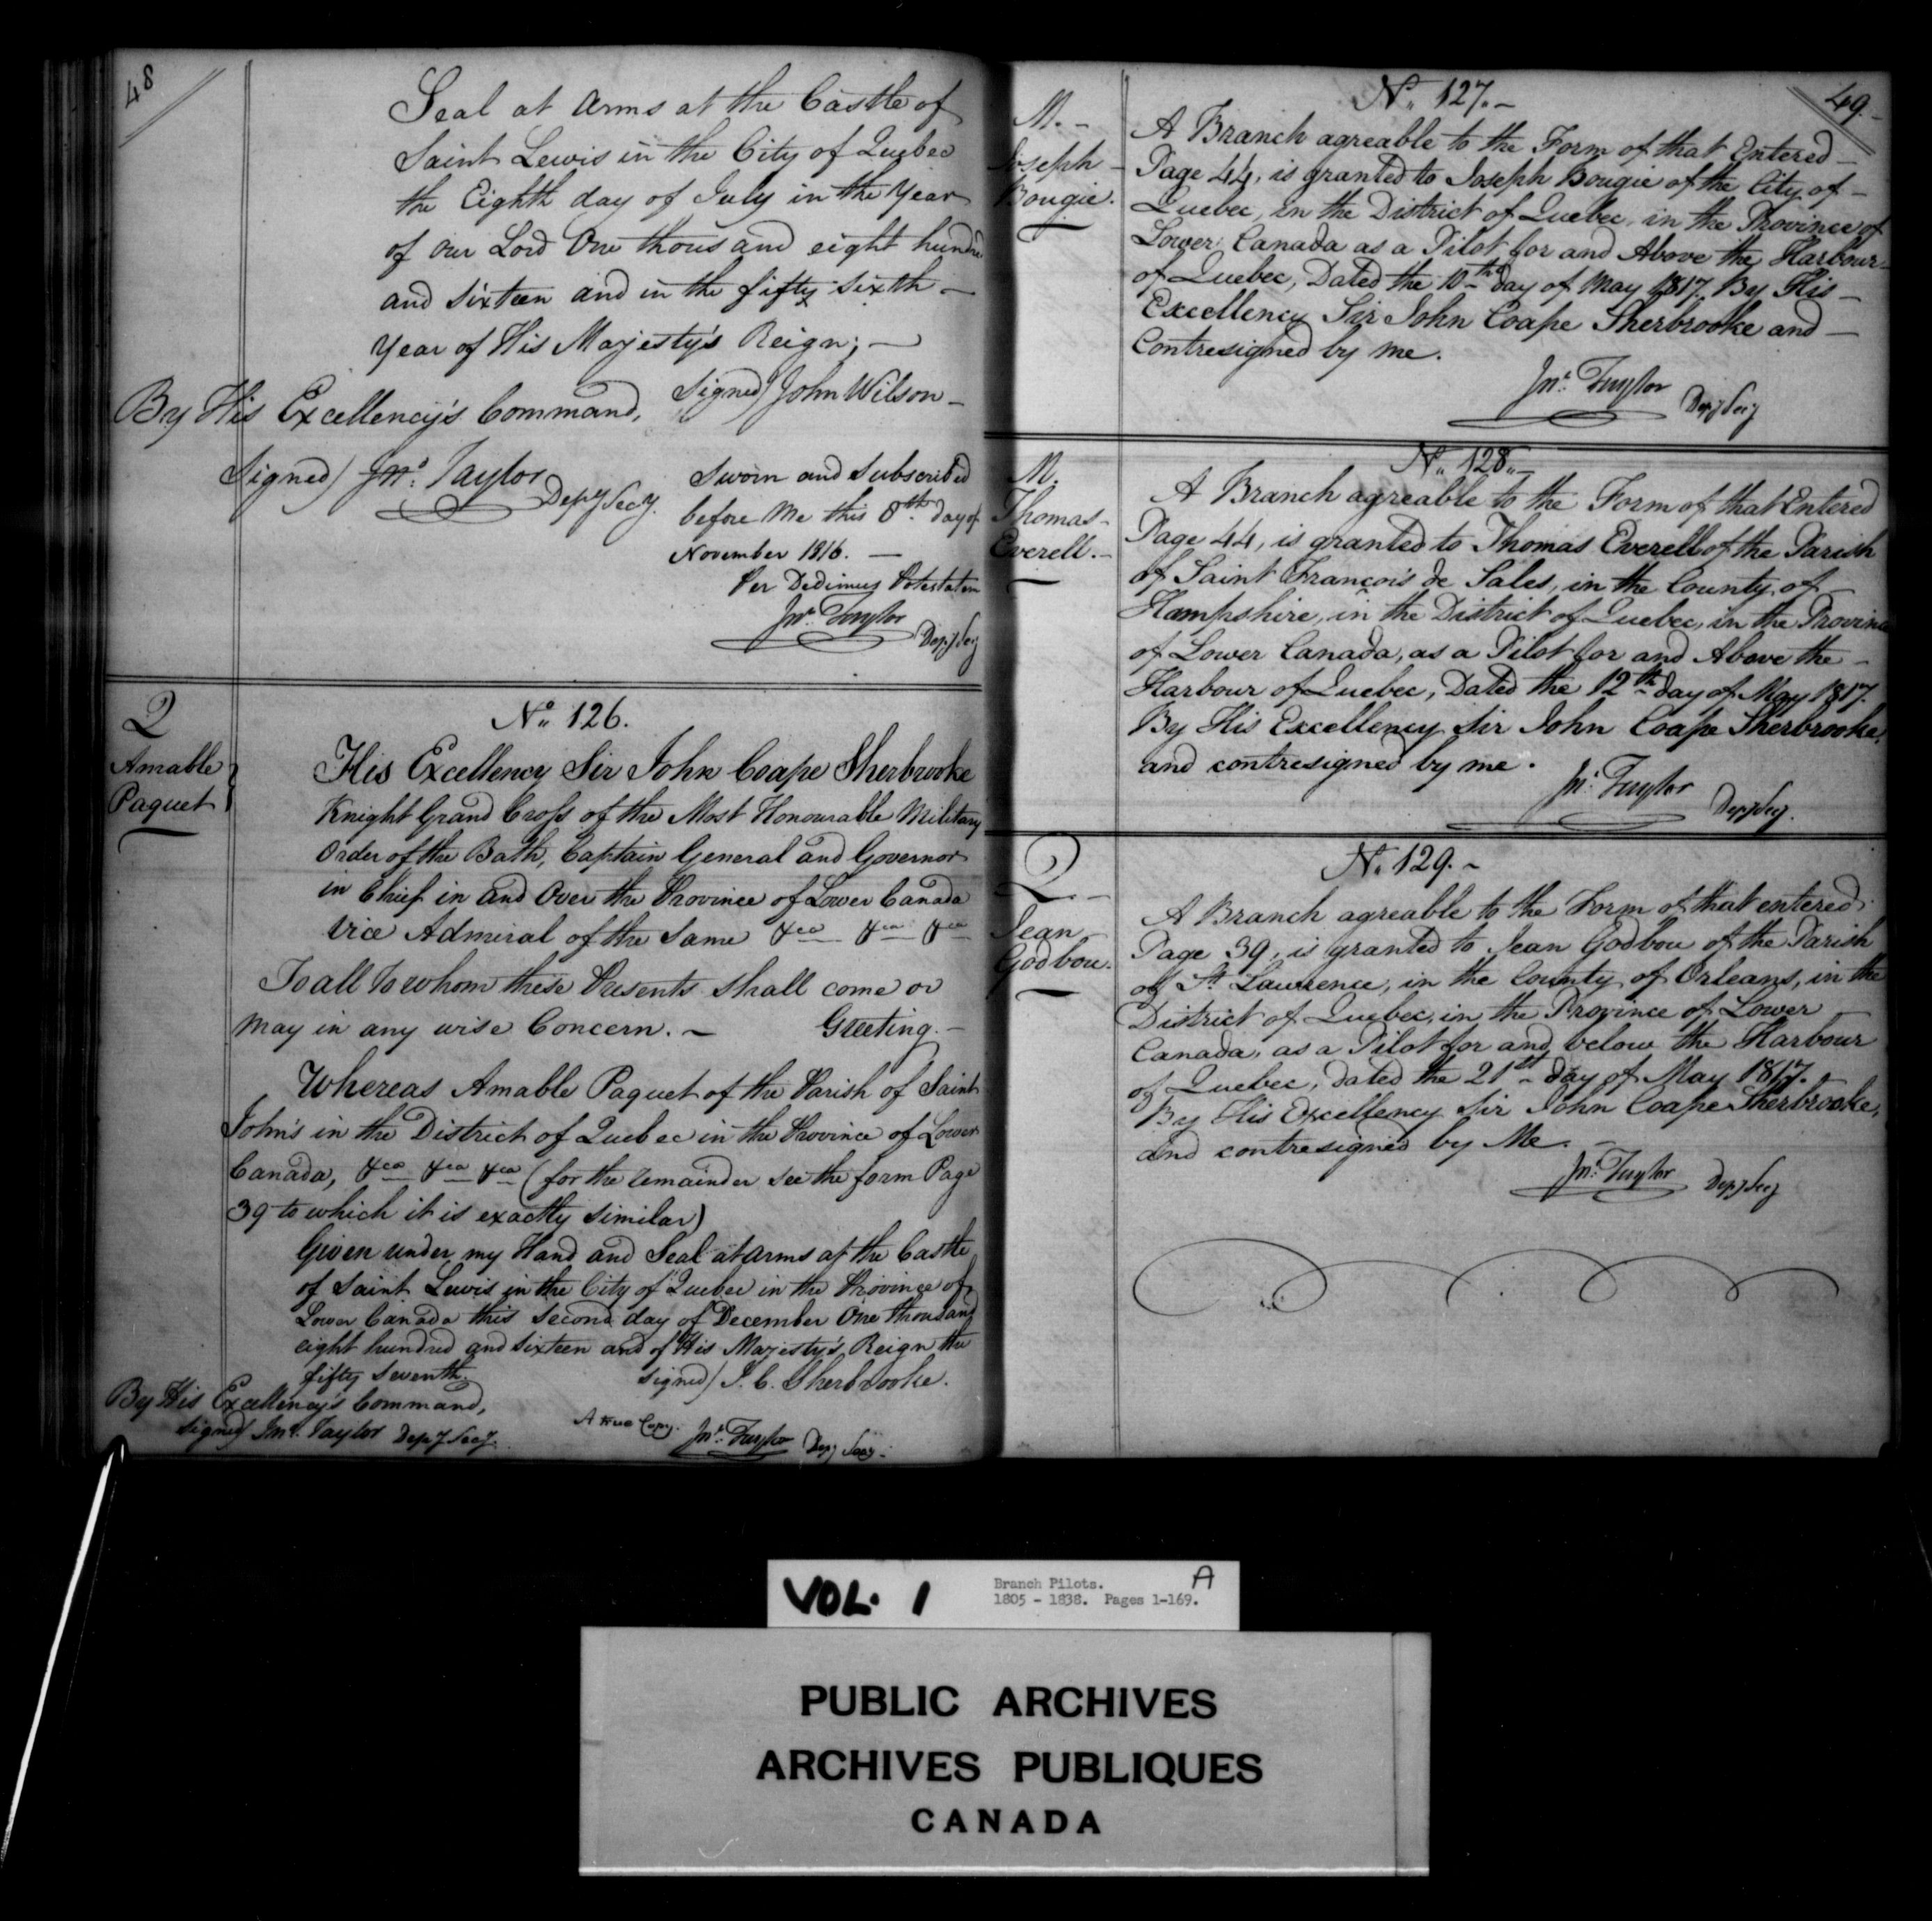 48
Seal at Arms at the Castle of
Saint Lewis in the City of Quebec
the Eighth day of July in the Year
of our Lord One thousand eight hundred
and sixteen and in the fifty sixth —
Year of His Majesty's Reign; —
Signed) John Wilson —
By His Excellency's Command,
Signed) Jno. Taylor
Depy Secy.
Sworn and Subscribed
before Me this 8th day of
November 1816. —
Per Dedimus Potestatem
Jno. Taylor
Depy Secy
Q
Amable
Paquet
No. 126.
His Excellency Sir John Coape Sherbrooke
Knight Grand Cross of the Most Honourable Military
Order of the Bath, Captain General and Governor
in Chief in and Over the Province of Lower Canada
Vice Admiral of the Same &ca &ca &ca
To all to whom these Presents shall come or
may in any wise Concern. — Greeting. —
Whereas Amable Paquet of the Parish of Saint
John's in the District of Quebec in the Province of Lower
Canada, &ca &ca &ca (for the remainder see the form Page
39 to which it is exactly similar)
Given under my Hand and Seal at arms at the Castle
of Saint Lewis in the City of Quebec in the Province of
Lower Canada this second day of December One thousand
eight hundred and sixteen and of His Majesty's Reign the
fifty seventh.
Signed) J. C. Sherbrooke.
By His Excellency's Command,
Signed Jno. Taylor Depy Secy.
A true Copy.
Jno. Taylor Depy Secy.
49.
No. 127. —
M. —
Joseph —
Bougie.
A Branch agreable to the Form of that Entered —
Page 44, is granted to Joseph Bougie of the City of —
Quebec, in the District of Quebec, in the Province of
Lower Canada as a Pilot for and Above the Harbour —
of Quebec, Dated the 10th day of May 1817. By His —
Excellency Sir John Coape Sherbrooke and —
Contresigned by me.
Jno. Taylor
Depy Secy
No. 128. —
M.
Thomas —
Everell. —
A Branch agreable to the Form of that Entered
Page 44, is granted to Thomas Everell of the Parish
of Saint François de Sales, in the County of —
Hampshire, in the District of Quebec, in the Province
of Lower Canada, as a Pilot for and Above the —
Harbour of Quebec, Dated the 12th day of May 1817.
By His Excellency Sir John Coape Sherbrooke,
and contresigned by me.
Jno. Taylor
Depy Secy.
No. 129. —
Q. —
Jean —
Godbou.
A Branch agreable to the Form of that entered
Page 39, is granted to Jean Godbou of the Parish
of St. Lawrence, in the County of Orleans, in the
District of Quebec, in the Province of Lower
Canada, as a Pilot for and below the Harbour
of Quebec, dated the 21st day of May 1817.
By His Excellency Sir John Coape Sherbrooke,
and contresigned by Me. —
Jno. Taylor
Depy Secy
VOL. 1
Branch Pilots.
1805 - 1838. Pages 1-169.
A
PUBLIC ARCHIVES
ARCHIVES PUBLIQUES
CANADA